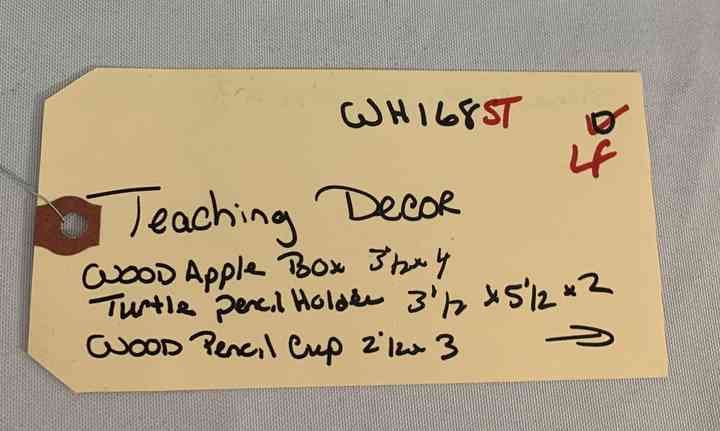 WH168ST
D
LF
Teaching Decor
Wood Apple Box 3 1/2 x 4
Turtle pencil Holder 3 1/2 x 5 1/2 x 2
Wood Pencil Cup 2 1/2 x 3 →